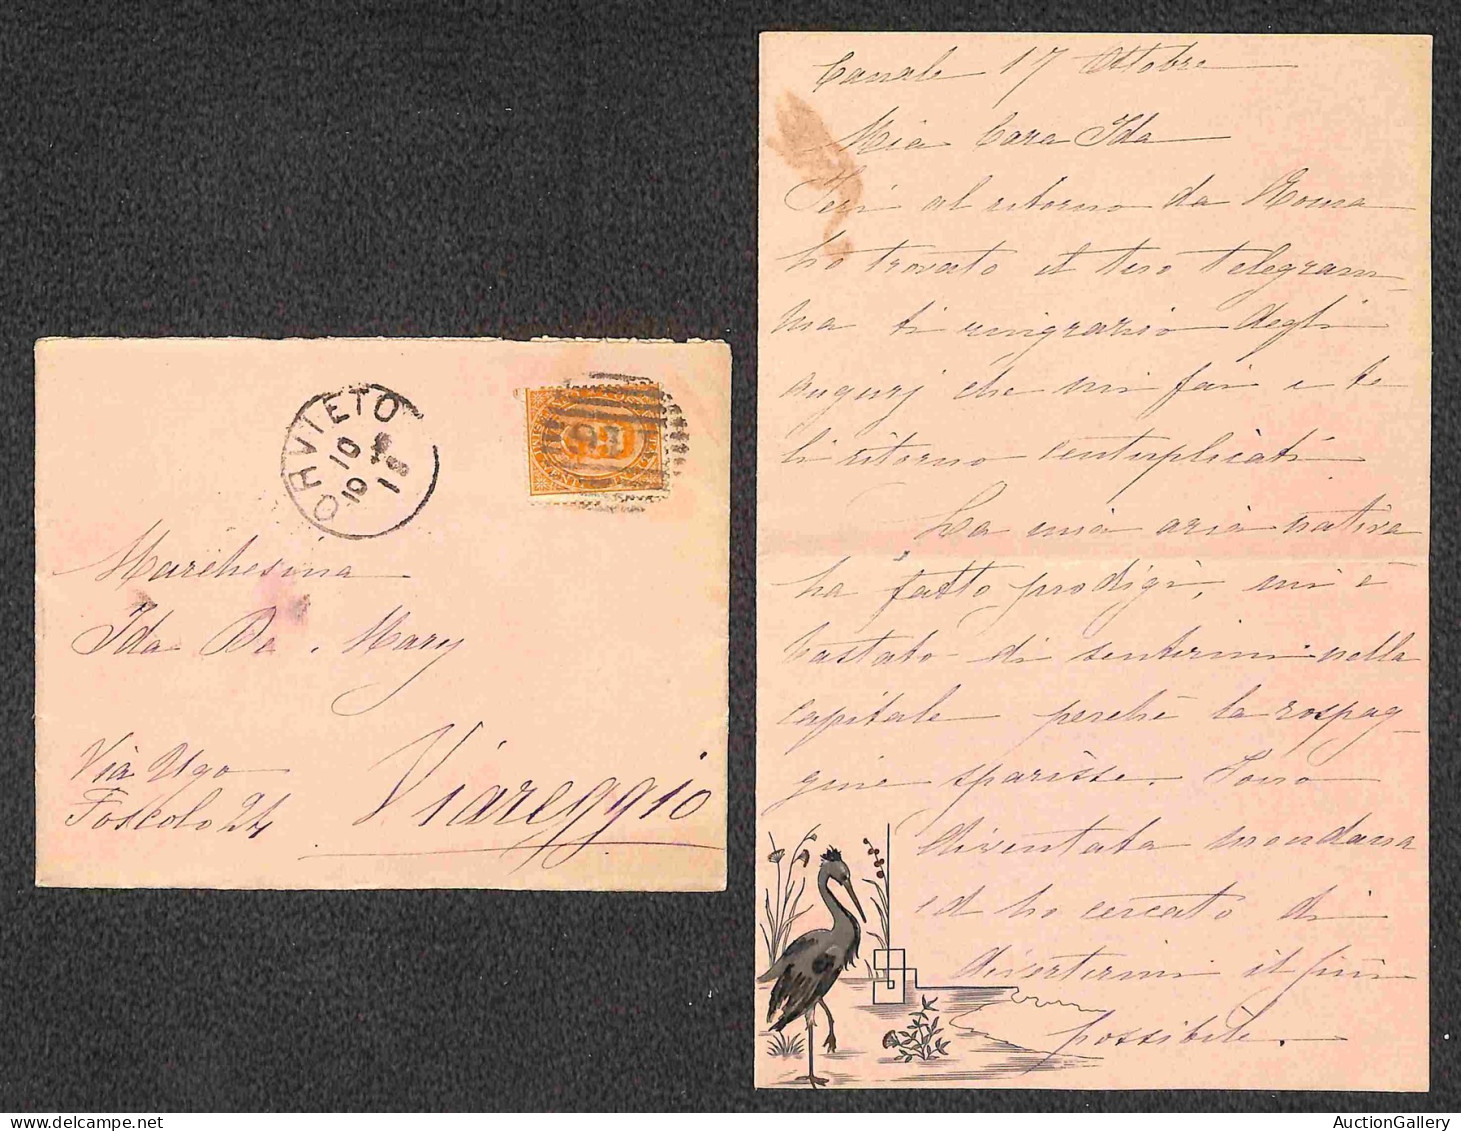 ORVIETO
10
10
18
91
Marchesina
Ida De Mary
Via Ugo
Foscolo 24
Viareggio
Canale 17 Ottobre
Mia Cara Ida
Ieri al ritorno da Roma
ho trovato il tuo telegram
ma ti ringrazio degli
augurj che mi fai e te
li ritorno centuplicati
La mia aria nativa
ha fatto prodigi, mi è
bastato di sentirmi nella
capitale perchè la rospag
gine sparisse. Sono
diventata mondana
ed ho cercato di
divertirmi il più
possibile.
AuctionGallery